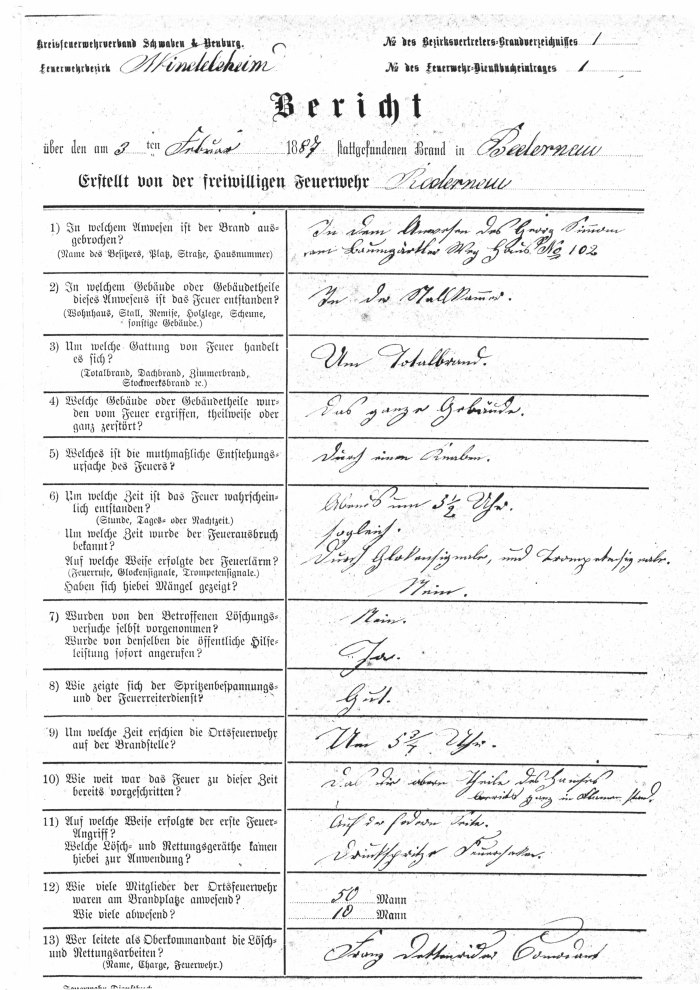 Kreisfeuerwehrverband Schwaben & Neuburg.
No des Bezirksvertreters-Brandverzeichnisses 1
Feuerwehrbezirk Mindelheim
No des Feuerwehr-Dienstbucheintrages 1
Bericht
über den am 3 ten Februar 1887 stattgefundenen Brand in Bedernau
Erstellt von der freiwilligen Feuerwehr Bedernau
1) In welchem Anwesen ist der Brand aus-
gebrochen?
(Name des Besitzers, Platz, Straße, Hausnummer)
In dem Anwesen des Georg
am Baumgärtler Weg Haus No 102
2) In welchem Gebäude oder Gebäudetheile
dieses Anwesens ist das Feuer entstanden?
(Wohnhaus, Stall, Remise, Holzlege, Scheune,
sonstige Gebäude.)
In der Stallkammer.
3) Um welche Gattung von Feuer handelt
es sich?
(Totalbrand, Dachbrand, Zimmerbrand,
Stockwerksbrand ꝛc.)
Um Totalbrand.
4) Welche Gebäude oder Gebäudetheile wur-
den vom Feuer ergriffen, theilweise oder
ganz zerstört?
Das ganze Gebäude.
5) Welches ist die muthmaßliche Entstehungs-
ursache des Feuers?
Durch einen Knaben.
6) Um welche Zeit ist das Feuer wahrschein-
lich entstanden?
(Stunde, Tages- oder Nachtzeit.)
Um welche Zeit wurde der Feuerausbruch
bekannt?
Auf welche Weise erfolgte der Feuerlärm?
(Feuerrufe, Glockensignale, Trompetensignale.)
Haben sich hiebei Mängel gezeigt?
Abends um 5 1/2 Uhr.
sogleich.
Durch Glokensignale, und Trompetensignale.
Nein.
7) Wurden von den Betroffenen Löschungs-
versuche selbst vorgenommen?
Wurde von denselben die öffentliche Hilfe-
leistung sofort angerufen?
Nein.
Ja.
8) Wie zeigte sich der Spritzenbespannungs-
und der Feuerreiterdienst?
Gut.
9) Um welche Zeit erschien die Ortsfeuerwehr
auf der Brandstelle?
Um 5 3/4 Uhr.
10) Wie weit war das Feuer zu dieser Zeit
bereits vorgeschritten?
Das die obern Theile des Hauses
bereits ganz in Flamen stand.
11) Auf welche Weise erfolgte der erste Feuer-
Angriff?
Welche Lösch- und Rettungsgeräthe kamen
hiebei zur Anwendung?
Auf der Seite.
Drukspritze Feuerhaken.
12) Wie viele Mitglieder der Ortsfeuerwehr
waren am Brandplatze anwesend?
Wie viele abwesend?
50 Mann
10 Mann
13) Wer leitete als Oberkommandant die Lösch-
und Rettungsarbeiten?
(Name, Charge, Feuerwehr.)
Franz Comodant